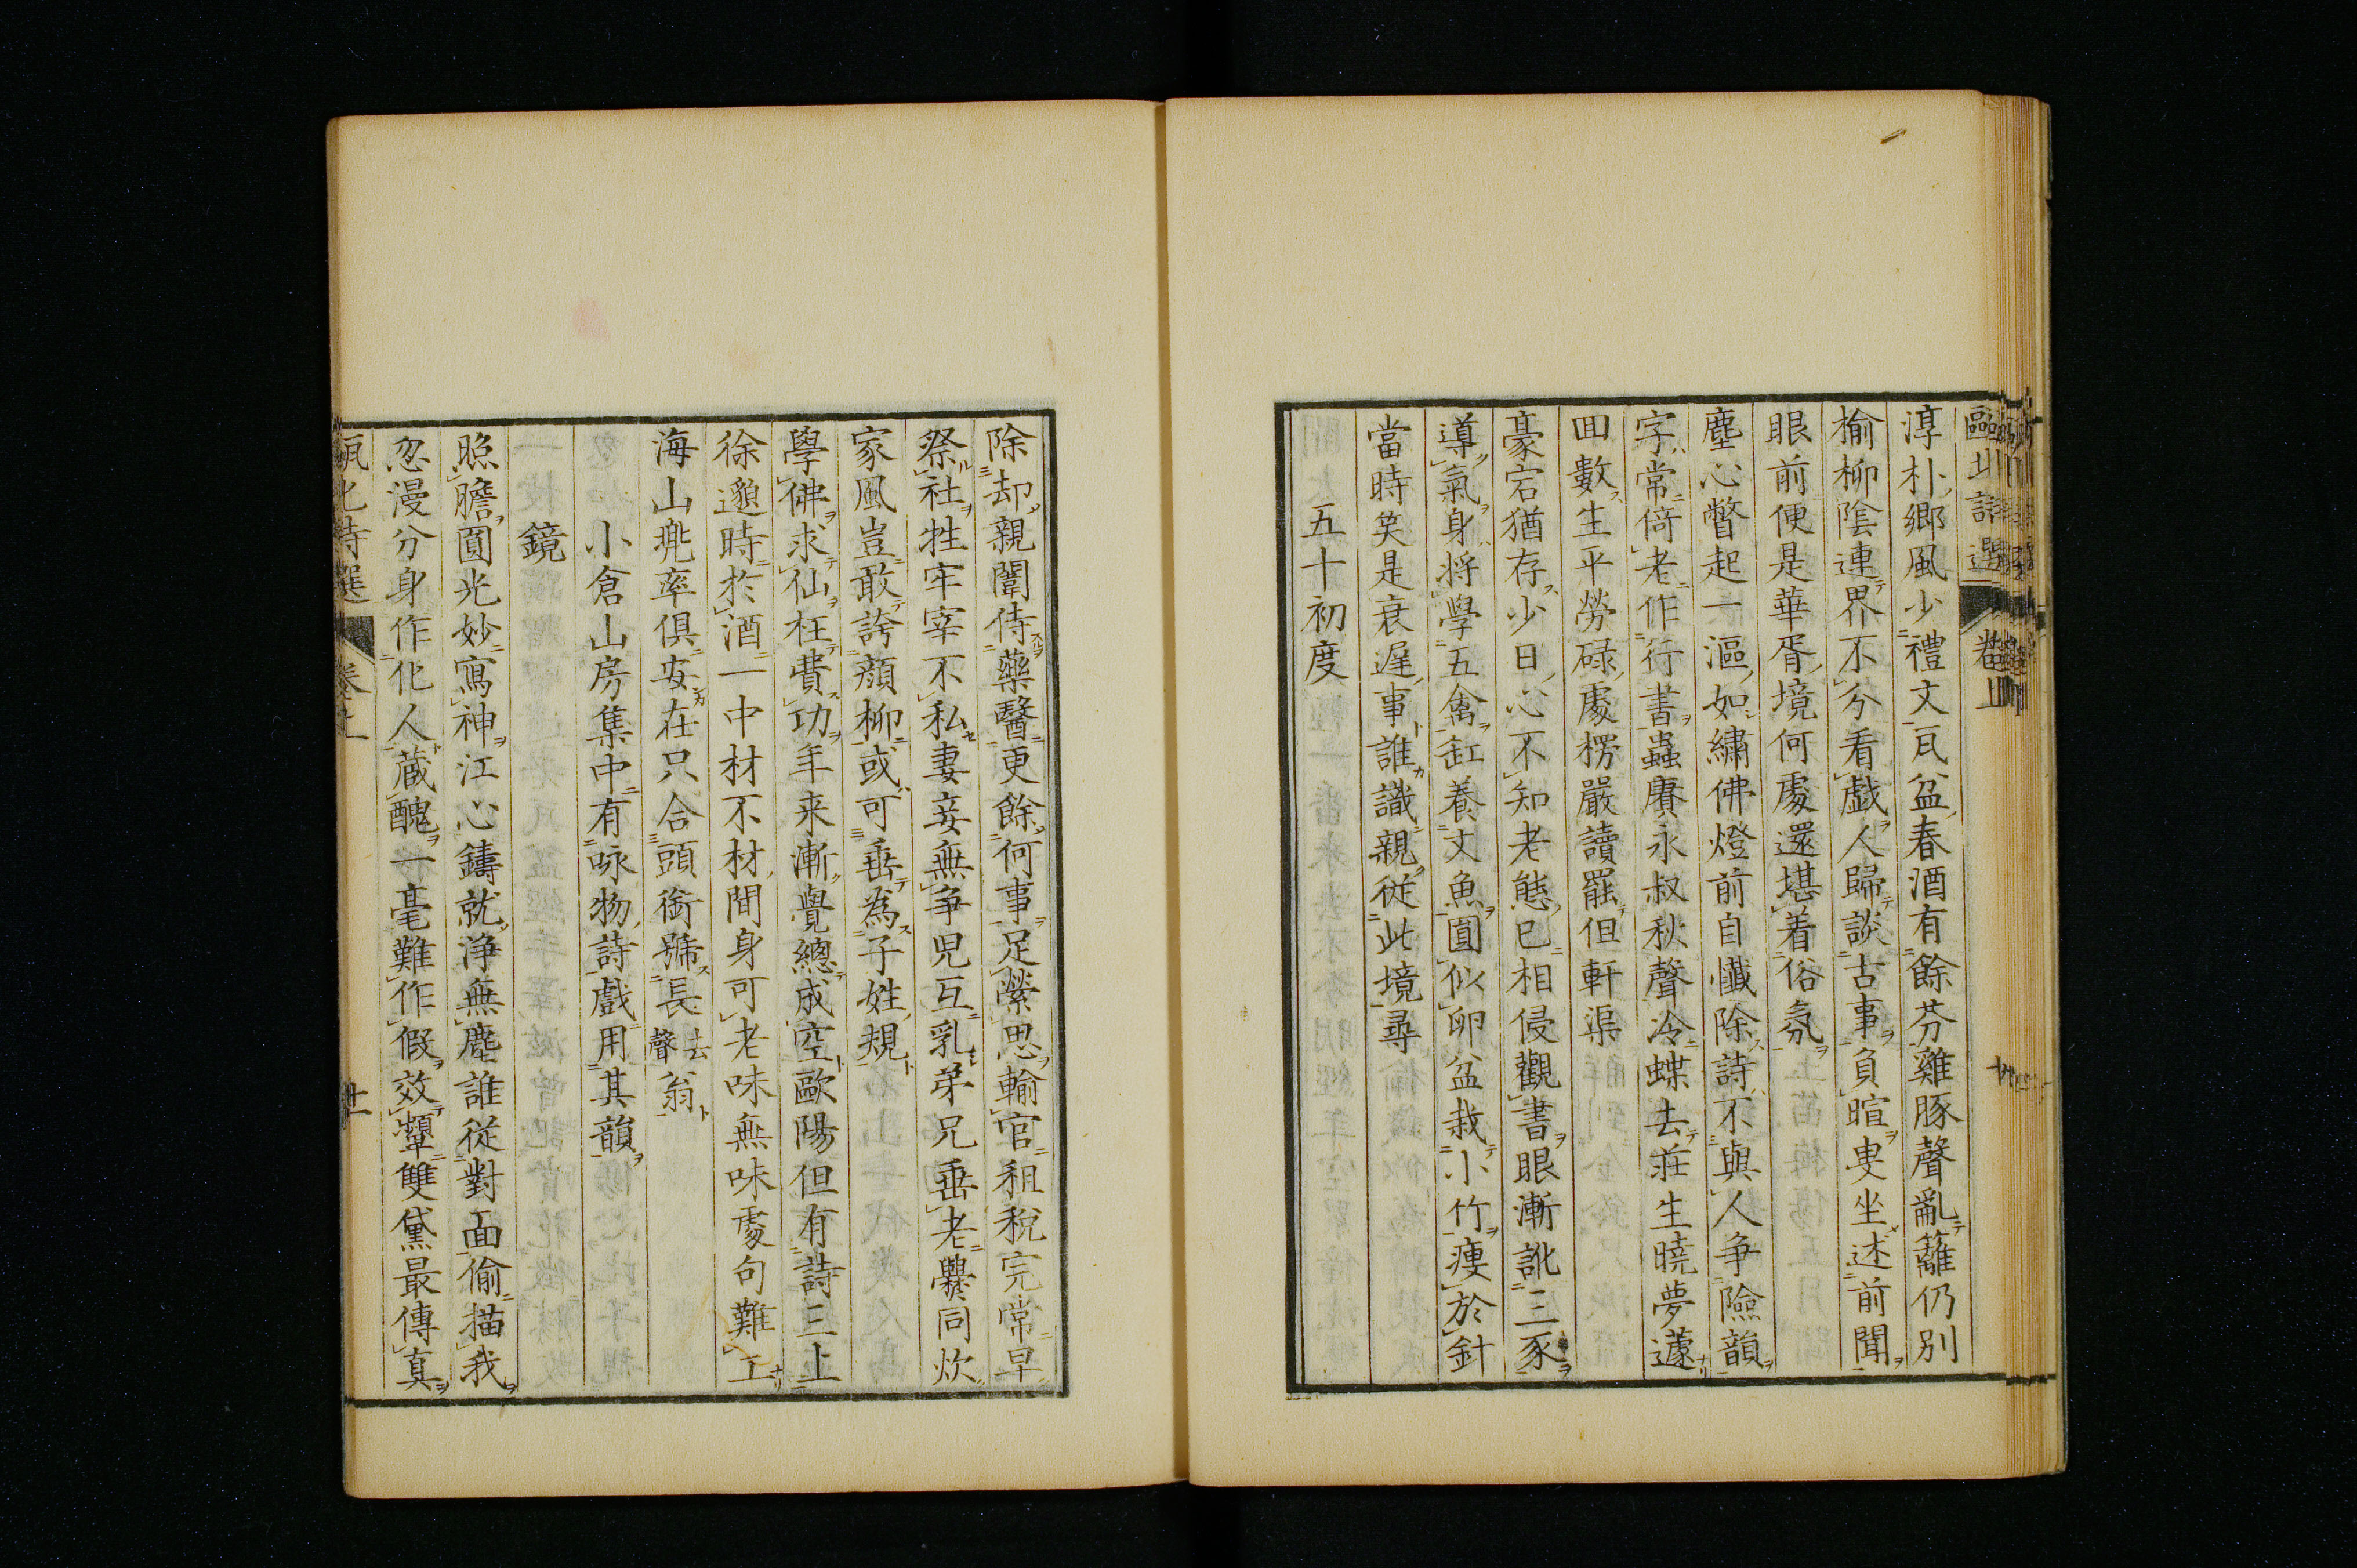 甌北詩選 卷上
淳朴鄉風少禮文瓦盆春酒有餘芬雞豚聲亂籬仍別
榆柳陰連界不分看戯人歸談古事負暄叟坐述前聞
眼前便是華胥境何處還堪着俗氛
塵心瞥起一漚如繡佛燈前自懺除詩不與人争險韻
字常倚老作行書蟲賡永叔秋聲冷蝶去莊生曉夢蘧
囬數生平勞碌處楞嚴讀罷但軒渠
豪宕猶存少日心不知老態已相侵觀書眼漸訛三豕
導氣身将學五禽缸養文魚圓似卵盆栽小竹痩於針
當時笑是衰遲事誰識親從此境尋
五十初度
除却親闈侍藥醫更餘何事足縈思輸官租稅完常早
祭社牲牢宰不私妻妾無爭児互乳弟兄垂老爨同炊
家風豈敢誇顔柳或可垂為子姓規
學佛求仙枉費功年来漸覺總成空歐陽但有詩三上
徐邈時於酒一中材不材間身可老味無味處句難工
海山兠率俱安在只合頭銜號長去聲翁
小倉山房集中有咏物詩戲用其韻
鏡
照膽圓光妙寫神江心鑄就浄無塵誰從對面偷描我
忽漫分身作化人蔵醜一毫難作假效顰雙黛最傳真
甌北詩選 卷上 廿一